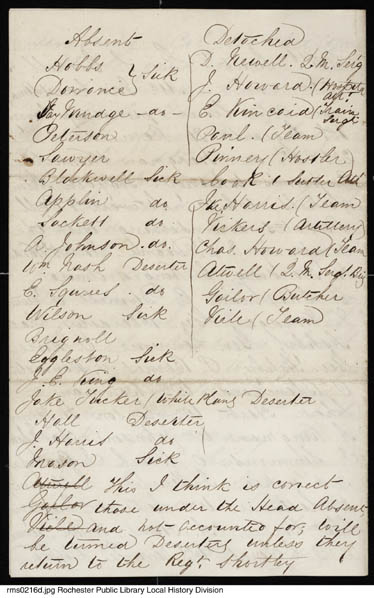 Absent
Hobbs } Sick
Downie
Jas Vandge - do -
Peterson
Sawyer
Blackwell Sick
Applin do
Sackett do
A. Johnson. do.
Wm Nash Deserter
E. Squires do
Wilson Sick
Bignoll
Eggleston Sick
J. E. King do
Jake Tucker (White Plains Deserter
Hall Deserter
J. Harris do
Sick
Atwell This I think is correct
Gailor those under the Head Absent
Viele and not accounted for, will
be turned Deserters unless they
return to the Regt shortly
Detached
D. Newell. Q.M. Serg
J. Howard. (Hospital
E. Kincaid (Train
Sergt
Paul. (Team
Pinner (Hostler
Cook & Sutler
Harris. (Team
Vickers. (Artillery)
Chas. Howard (Team
Atwell (Q.M. Sergt Brig
Gailor (Butcher
Viele (Team
rms0216d.jpg Rochester Public Library Local History Division